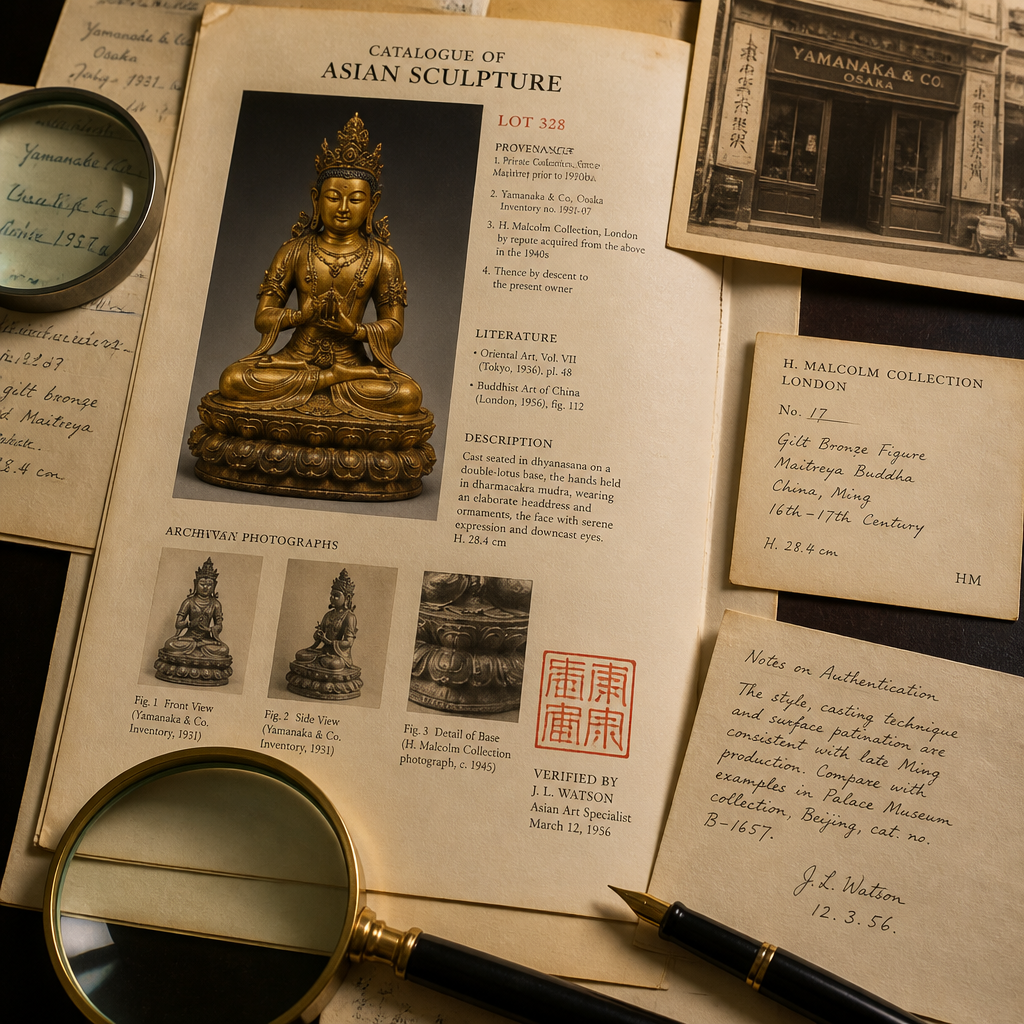 Yamanaka & Co
Osaka
1931
Yamanaka
1937
gilt bronze
Maitreya
28.4 cm.
CATALOGUE OF
ASIAN SCULPTURE
LOT 328
1. Private
prior to
2. Yamanaka & Co, Osaka
Inventory no. 1931-07
3. H. Malcolm Collection, London
by repute acquired from the above
in the 1940s
4. Thence by descent to
the present owner
LITERATURE
• Oriental Art, Vol. VII
(Tokyo, 1936), pl. 48
• Buddhist Art of China
(London, 1956), fig. 112
DESCRIPTION
Cast seated in dhyanasana on a
double-lotus base, the hands held
in dharmacakra mudra, wearing
an elaborate headdress and
ornaments, the face with serene
expression and downcast eyes.
H. 28.4 cm
PHOTOGRAPHS
Fig. 1 Front View
(Yamanaka & Co.
Inventory, 1931)
Fig. 2 Side View
(Yamanaka & Co.
Inventory, 1931)
Fig. 3 Detail of Base
(H. Malcolm Collection
photograph, c. 1945)
VERIFIED BY
J. L. WATSON
Asian Art Specialist
March 12, 1956
YAMANAKA & CO.
OSAKA
H. MALCOLM COLLECTION
LONDON
No. 17
Gilt Bronze Figure
Maitreya Buddha
China, Ming
16th–17th Century
H. 28.4 cm
HM
Notes on Authentication
The style, casting technique
and surface patination are
consistent with late Ming
production. Compare with
examples in Palace Museum
collection, Beijing, cat. no.
B-1657.
J.L. Watson
12. 3. 56.